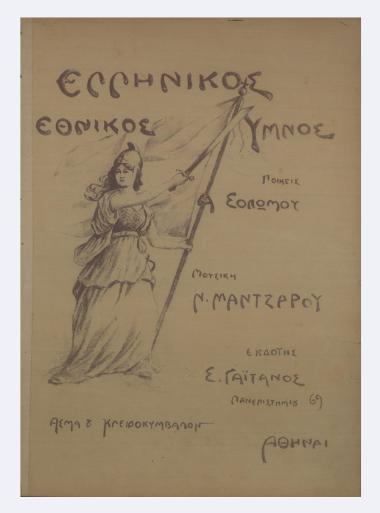 ΕΛΛΗΝΙΚΟΣ
ΕΘΝΙΚΟΣ ΥΜΝΟΣ
ΠΟΙΗΣΙΣ
Δ ΣΟΛΩΜΟΥ
ΜΟΥΣΙΚΗ
Ν. ΜΑΝΤΖΑΡΟΥ
ΕΚΔΟΤΗΣ
Ε. ΓΑΪΤΑΝΟΣ
ΠΑΝΕΠΙΣΤΗΜΙΟΥ 69
ΑΣΜΑ & ΚΛΕΙΔΟΚΥΜΒΑΛΟΝ
ΑΘΗΝΑΙ